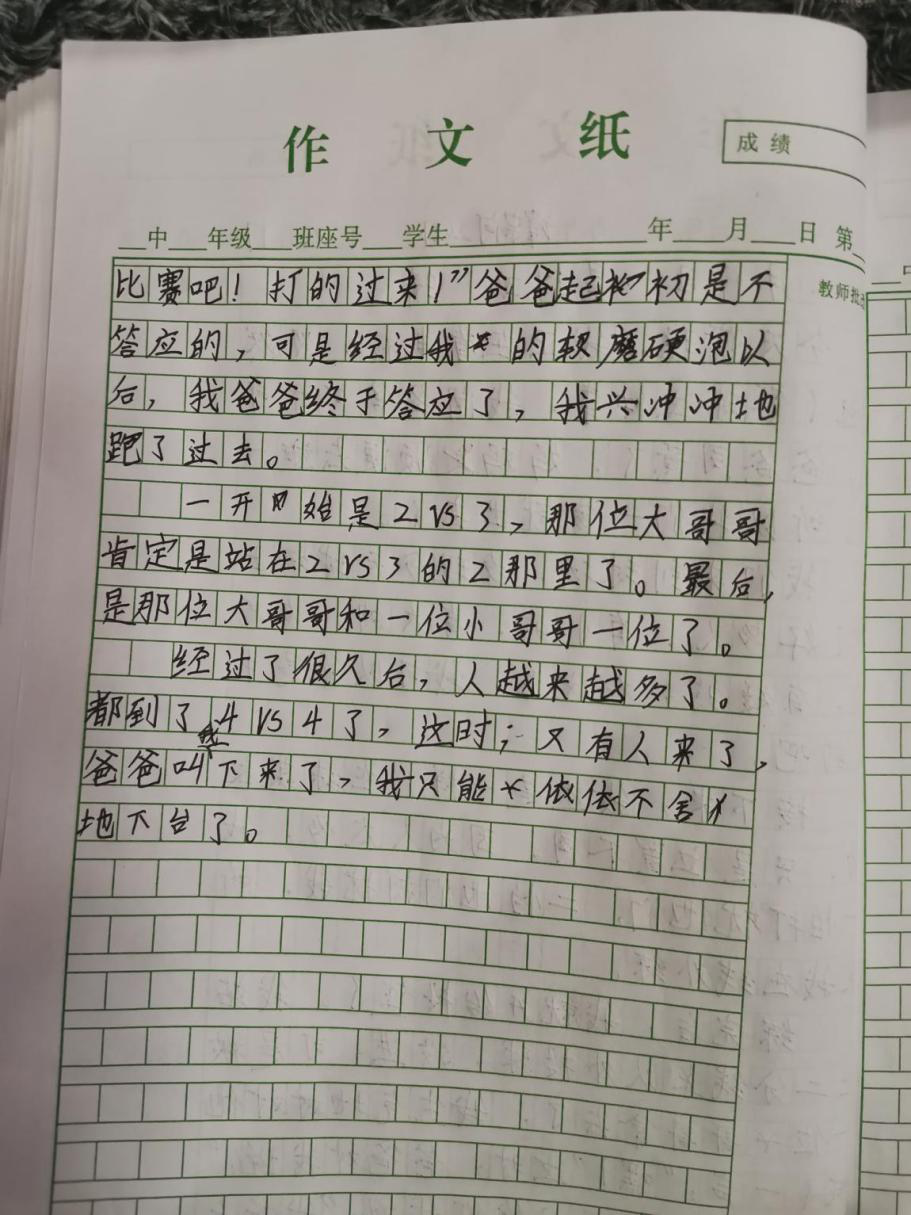 作文纸
成绩
中 年级 班座号 学生 年 月 日 第
教师批
比赛吧！打的过来！”爸爸起初是不
答应的，可是经过我的软磨硬泡以
后，我爸爸终于答应了，我兴冲冲地
跑了过去。
一开始是2VS3，那位大哥哥
肯定是站在2VS3的2那里了。最后，
是那位大哥哥和一位小哥哥一位了。
经过了很久后，人越来越多了。
都到了4VS4了，这时；又有人来了，
爸爸叫我下来了，我只能依依不舍
地下台了。